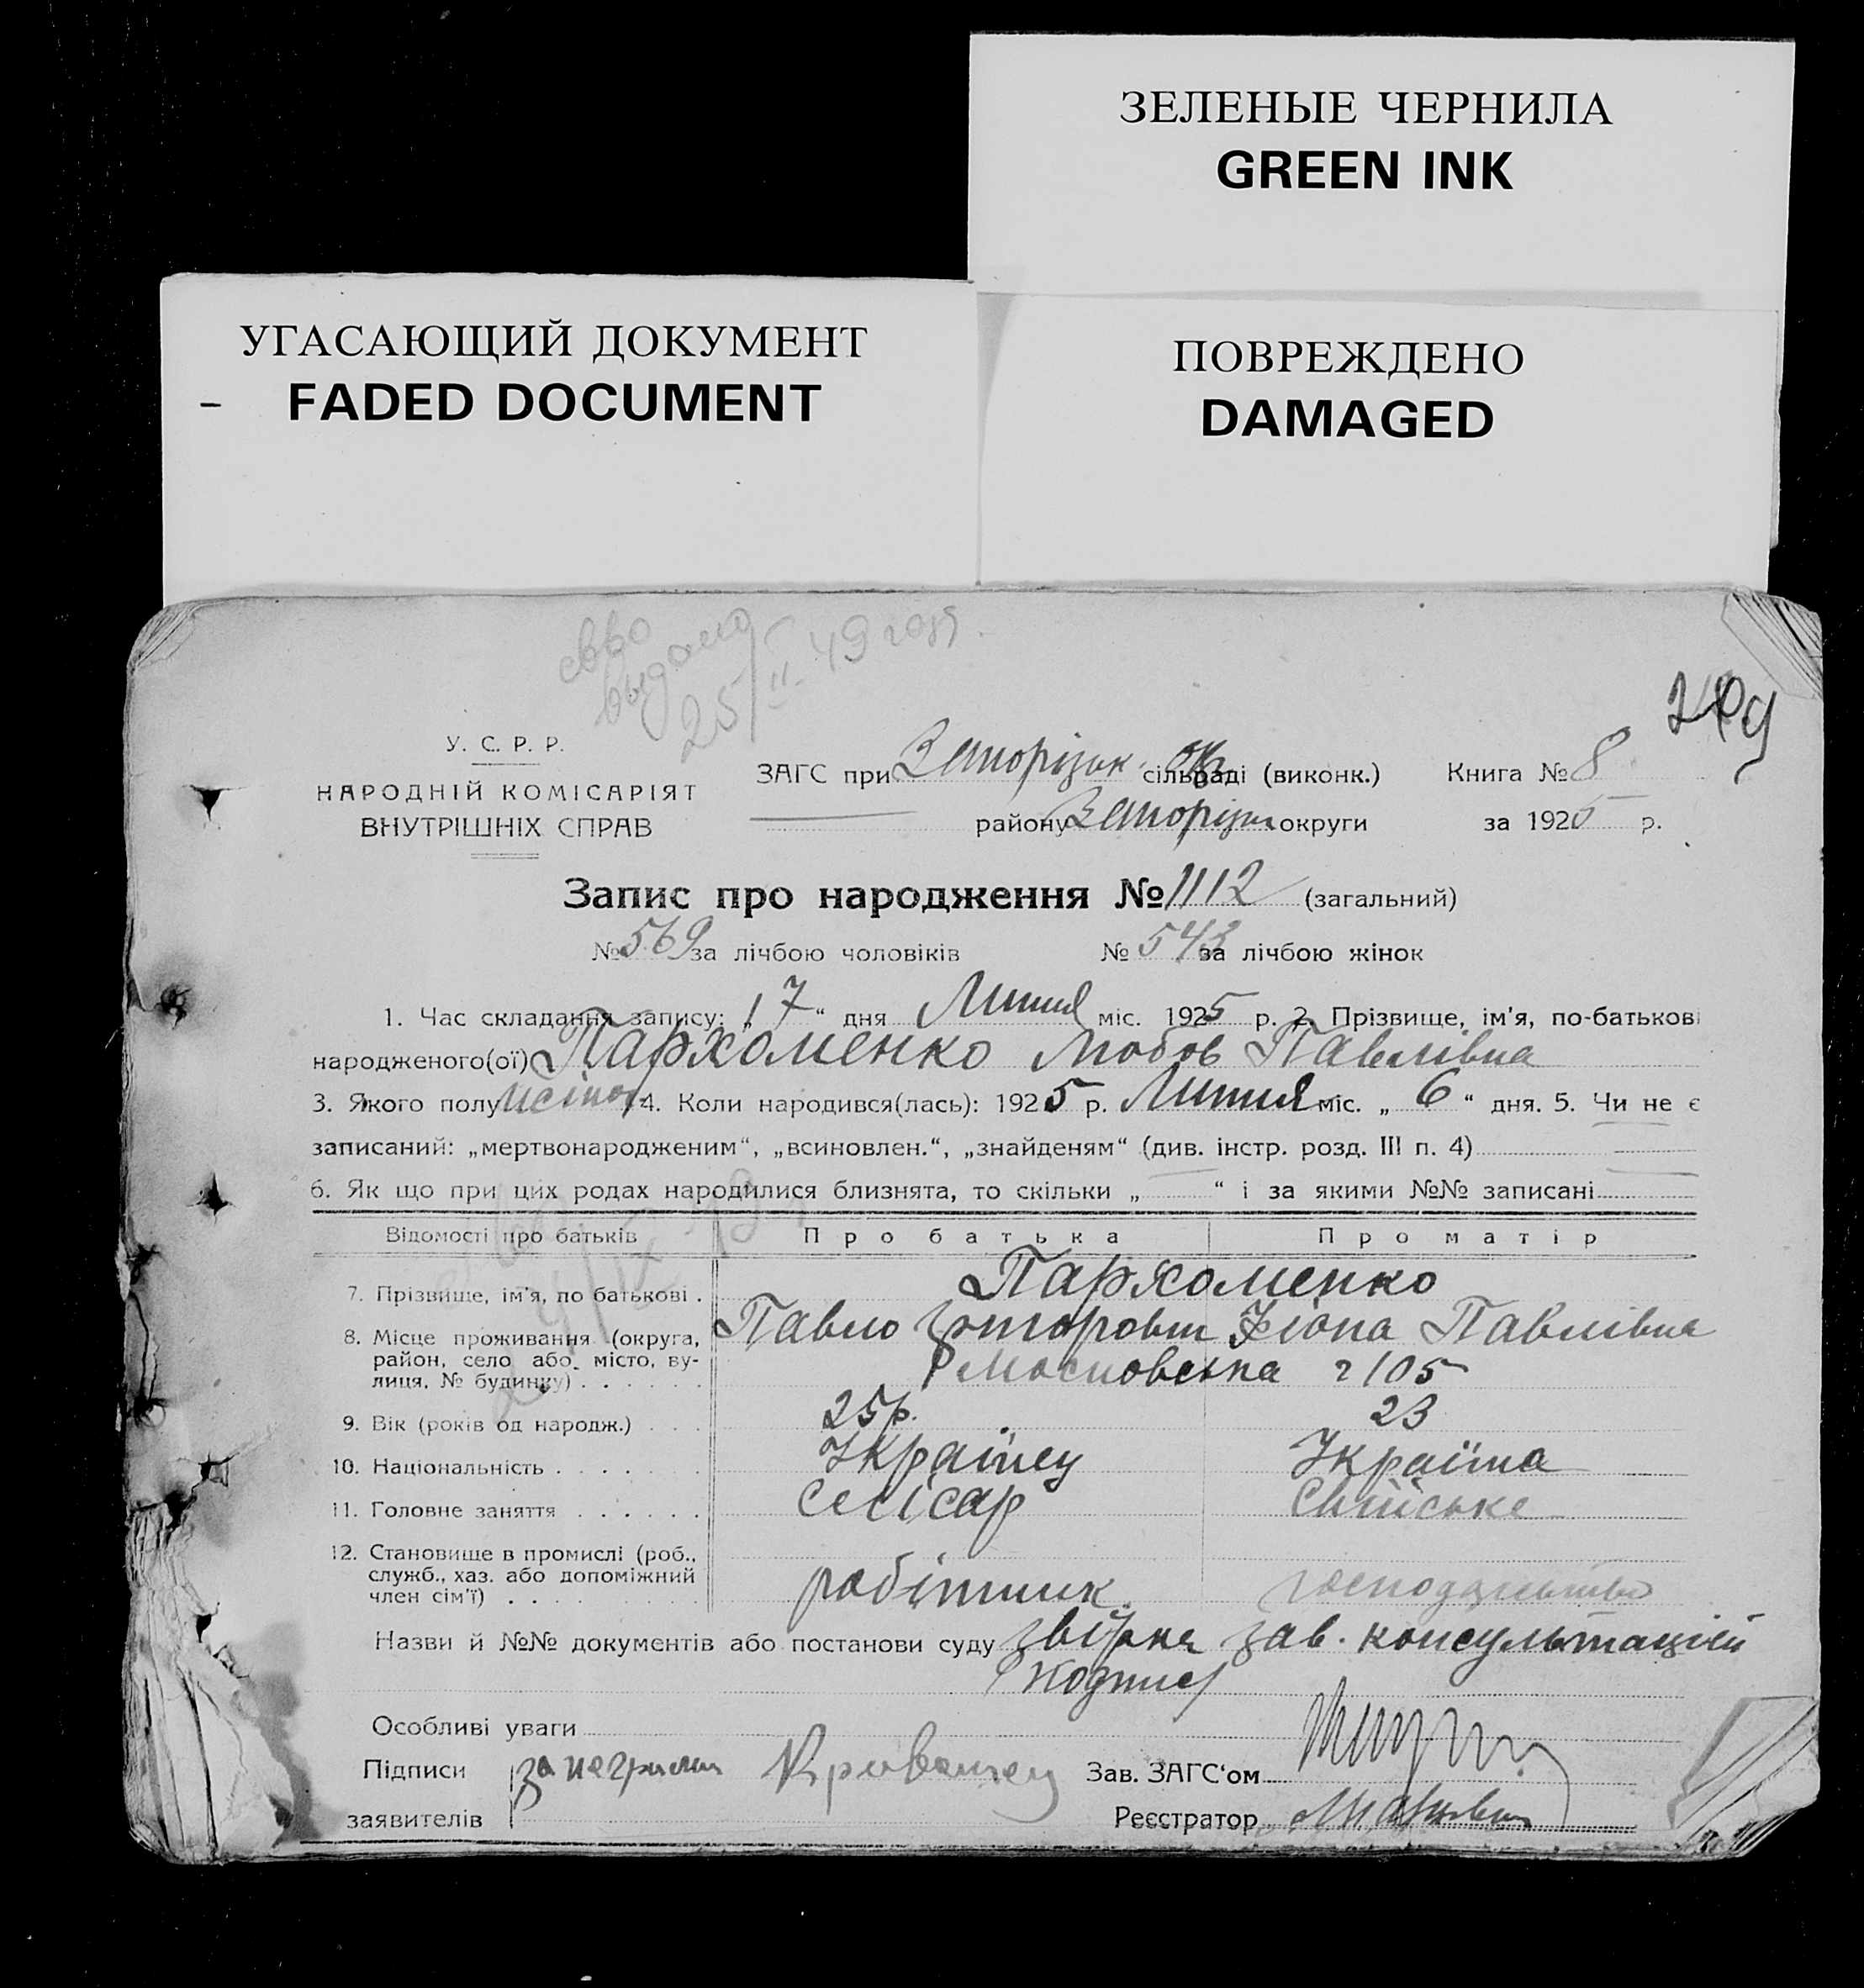 ЗЕЛЕНЫЕ ЧЕРНИЛА
GREEN INK
УГАСАЮЩИЙ ДОКУМЕНТ
FADED DOCUMENT
ПОВРЕЖДЕНО
DAMAGED
выдано
25/II-49 года
У. С. Р. Р.
НАРОДНІЙ КОМІСАРІЯТ
ВНУТРІШНІХ СПРАВ
ЗАГС при Запорізьк. Окр сільраді (виконк.) Книга № 8
району Запорізьк округи за 1925 р.
Запис про народження № 1112 (загальний)
№ 569 за лічбою чоловіків № 543 за лічбою жінок
1. Час складання запису: „17“ дня Липня міс. 1925 р. 2. Прізвище, ім’я, по-батькові
народженого(ої) Пархоменко Любов Павлівна
3. Якого полу жіноч 4. Коли народився(лась): 1925 р. Липня міс. „ 6 “ дня. 5. Чи не є
записаний: „мертвонародженим“, „всиновлен.“, „знайденям“ (див. інстр. розд. III п. 4)
6. Як що при цих родах народилися близнята, то скільки „ “ і за якими №№ записані
Відомості про батьків Про батька Про матір
7. Прізвище, ім’я, по батькові . Пархоменко
Павло Павлівна
8. Місце проживання (округа, район, село або місто, вулиця, № будинку) Московська 105
9. Вік (років од народж.) . . . 25р. 23
10. Національність . . . . . . . Українец Україна
11. Головне заняття . . . . . . Слісар
12. Становище в промислі (роб., служб., хаз. або допоміжний член сім’ї) . . . . робітник господарство
Назви й №№ документів або постанови суду зав. консультацій
Особливі уваги
Підписи за неграмотн Зав. ЗАГС‘ом
заявителів Реєстратор